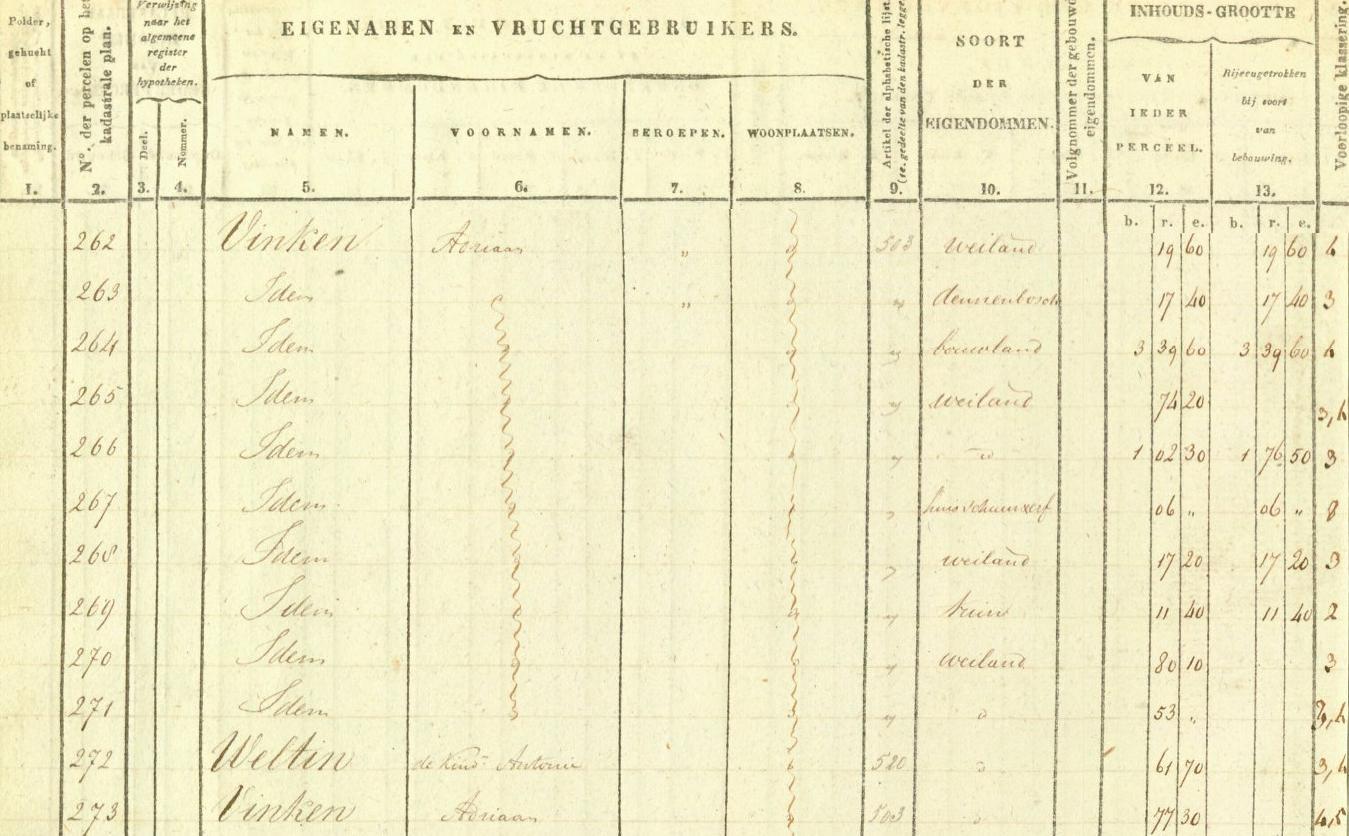 EIGENAREN EN VRUCHTGEBRUIKERS.
INHOUDS-GROOTTE
Polder, gehucht of plaatselijke benaming.
N°. der percelen op het kadastrale plan.
Verwijzing naar het algemeene register der hypotheken.
Deel.
Nommer.
NAMEN.
VOORNAMEN.
BEROEPEN.
WOONPLAATSEN.
Artikel der alphabetische lijst.
(1e. gedeelte van den kadastr. legger
SOORT DER EIGENDOMMEN.
Volgnommer der gebouwde eigendommen.
VAN IEDER PERCEEL.
Bijeengetrokken bij soort van bebouwing.
Voorloopige klassering.
1. 2. 3. 4. 5. 6. 7. 8. 9. 10. 11. 12. 13.
b. r. e. b. r. e.
262 Vinken Adriaan " 503 weiland 19 60 19 60 4
263 Idem " " dennenbosch 17 40 17 40 3
264 Idem " bouwland 3 39 60 3 39 60 4
265 Idem " weiland 74 20 3,4
266 Idem " " 1 02 30 1 76 50 3
267 Idem " huis schuur & erf 06 " 06 " 8
268 Idem " weiland 17 20 17 20 3
269 Idem " tuin 11 40 11 40 2
270 Idem " weiland 80 10 3
271 Idem " " 53 " 3,4
272 Weltin de Kind. Antonie 520 " 61 70 3,4
273 Vinken Adriaan 503 " 77 30 4,5